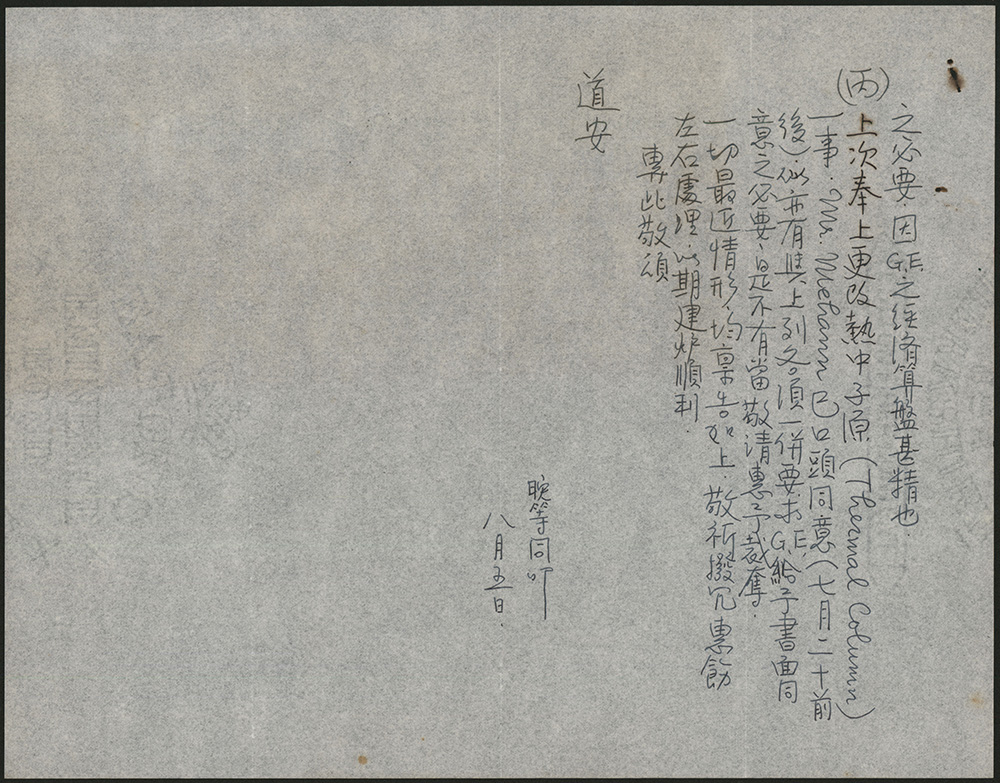 之必要．因G.E.之経済算盤甚精也．
(丙)上次奉上更改熱中子源(Thermal Column)
一事．Mr. Methann 已口頭同意(七月二十前
後)．似亦有與上列各項一併要求G.E.給予書面同
意之必要．是不有當敬請惠予裁奪．
一切最近情形均稟告如上．敬祈撥冗惠飭
左右處理．以期建炉順利．
專此敬頌
道安
晚等同叩
八月五日．